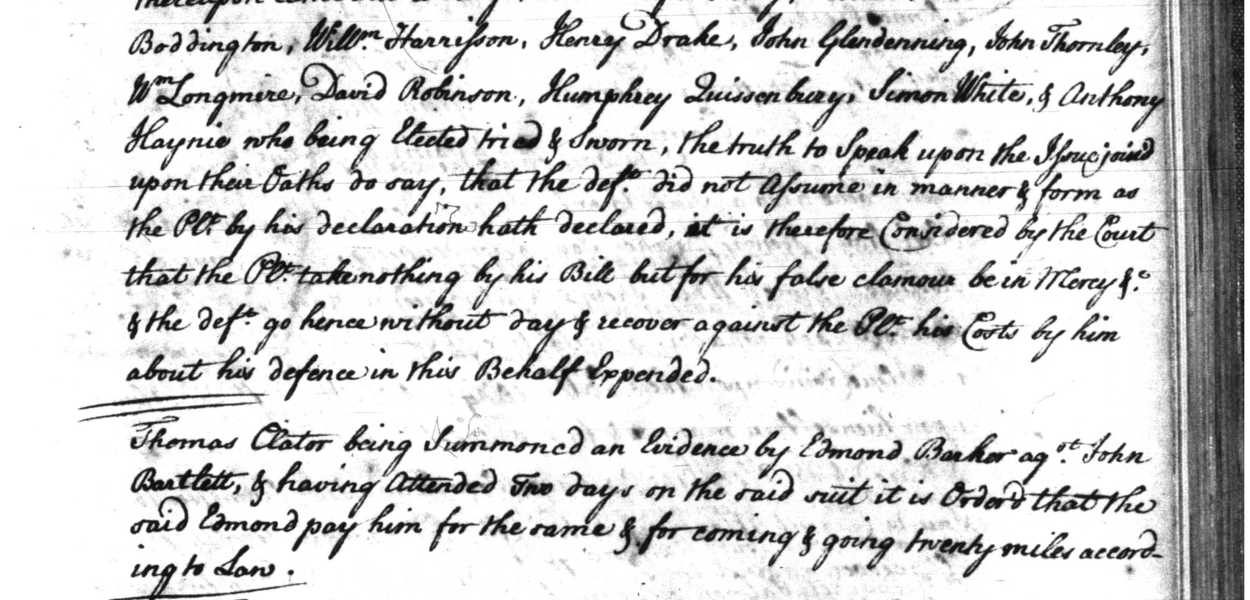 Boddington, Willm. Harrisson, Henry Drake, John Glendenning, John Thornley,
Wm Longmire, David Robinson, Humphrey Quissenbury, Simon White, & Anthony
Haynie who being Elected tried & Sworn, the truth to Speak upon the Issue joind
upon their Oaths do say, that the deft. did not Assume in manner & form as
the Plt. by his declaration hath declared, it is therefore Considered by the Court
that the Plt. take nothing by his Bill but for his false clamour be in Mercy &c
& the deft. go hence without day & recover against the Plt. his Costs by him
about his defence in this Behalf Expended.
Thomas Clator being Summoned an Evidence by Edmond Barker agst. John
Bartlett, & having Attended Two days on the said suit it is Orderd that the
said Edmond pay him for the same & for coming & going twenty miles accord-
ing to Law.